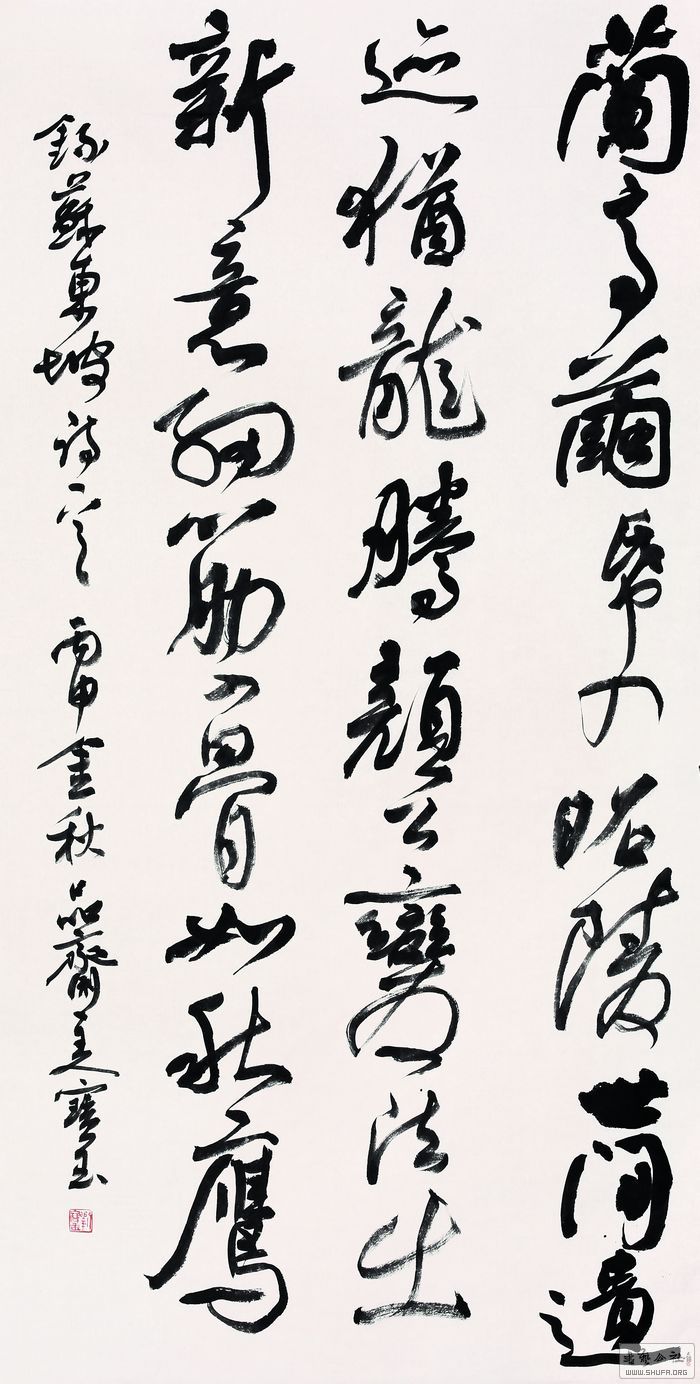 蘭亭繭帋入昭陵世間遺
迹猶龍騰顏公變法出
新意細筋入骨如秋鷹
錄蘇東坡詩一首 丙申金秋 品齋主人寶玉
WWW.SHUFA.ORG